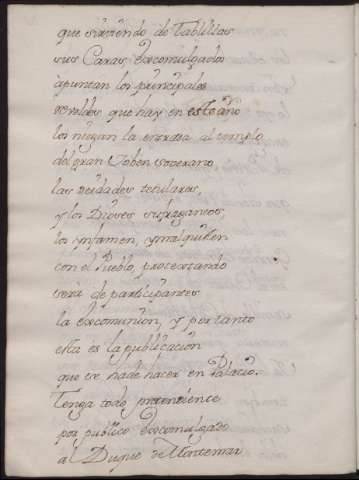 que sirviendo de Tablillas
sus Caras, Excomulgados
apuntan los principales
rebeldes que hay en este año
los niegan la entrada al templo
del gran Joben soverano
las deidades titulares,
y los Dioses sufraganeos,
los ynfamen, y malquisten
con el Pueblo, protextando
será de participantes
la Excomunion, y por tanto
esta es la publicacion
que se hade hacer en Palacio.
Tenga todo pretendiente
por publico Excomulgado
al Duque de Montemar